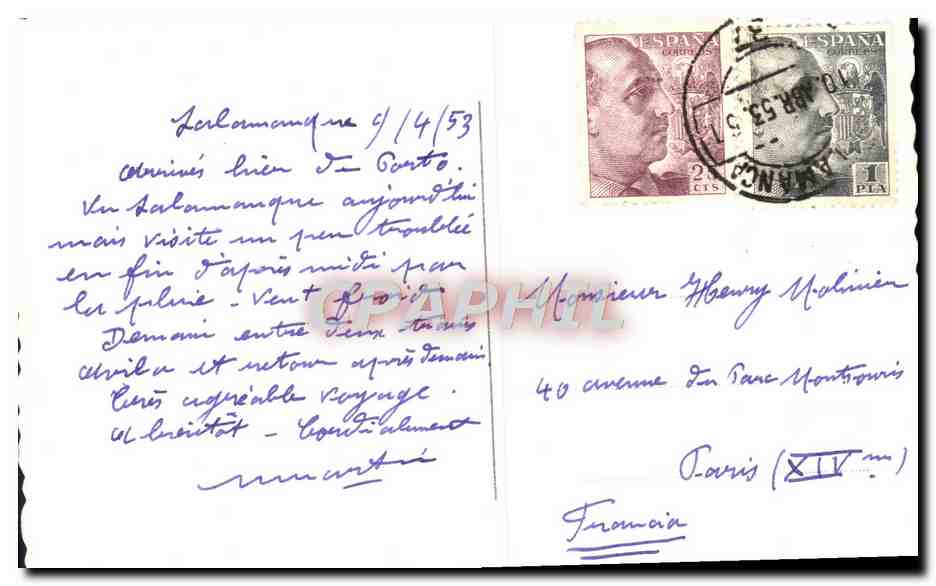 Salamanque 9/4/53
arrivés hier de Porto.
Vu Salamanque aujourd'hui
mais visite un peu troublée
en fin d'après midi par
la pluie - Vent froid.
Demain entre deux trains
Avila et retour après demain
très agréable voyage.
A bientôt - Cordialement
Monsieur Henry Molinier
40 avenue du Parc Montsouris
Paris (XIV me)
Francia
ESPAÑA
CORREOS
25
CTS
ESPAÑA
CORREOS
1
PTA
10. ABR. 53
AMANCA
CPAPHIL